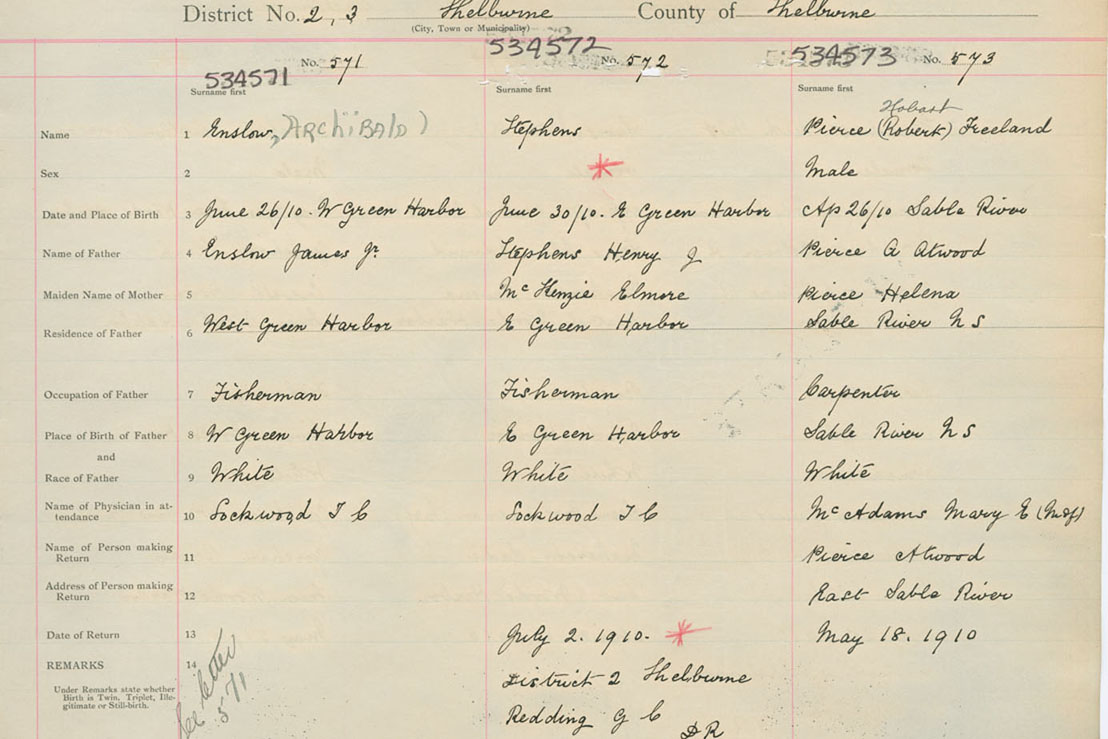 District No. 2, 3 Shelburne County of Shelburne
(City, Town or Municipality)
534571 No. 571 534572 No. 572 534573 No. 573
Surname first Surname first Surname first
Hobart
Name 1 Enslow, ARCHiBAlD) Stephens Pierce (Robert) Freeland
Sex 2 Male
Date and Place of Birth 3 June 26/10. W Green Harbor June 30/10. E Green Harbor Ap 26/10 Sable River
Name of Father 4 Enslow James Jr. Stephens Henry J Pierce A Atwood
Maiden Name of Mother 5 Mc Kenzie Elmore Pierce Helena
Residence of Father 6 West Green Harbor E Green Harbor Sable River N S
Occupation of Father 7 Fisherman Fisherman Carpenter
Place of Birth of Father 8 W Green Harbor E Green Harbor Sable River N S
and
Race of Father 9 White White White
Name of Physician in at-
tendance 10 Lockwood T C Lockwood T C Mc Adams Mary E
Name of Person making
Return 11 Pierce Atwood
Address of Person making
Return 12 East Sable River
Date of Return 13 July 2. 1910. May 18. 1910
REMARKS 14 See letter 571 District 2 Shelburne
Under Remarks state whether
Birth is Twin, Triplet, Ille-
gitimate or Still-birth.
Redding G C
D R